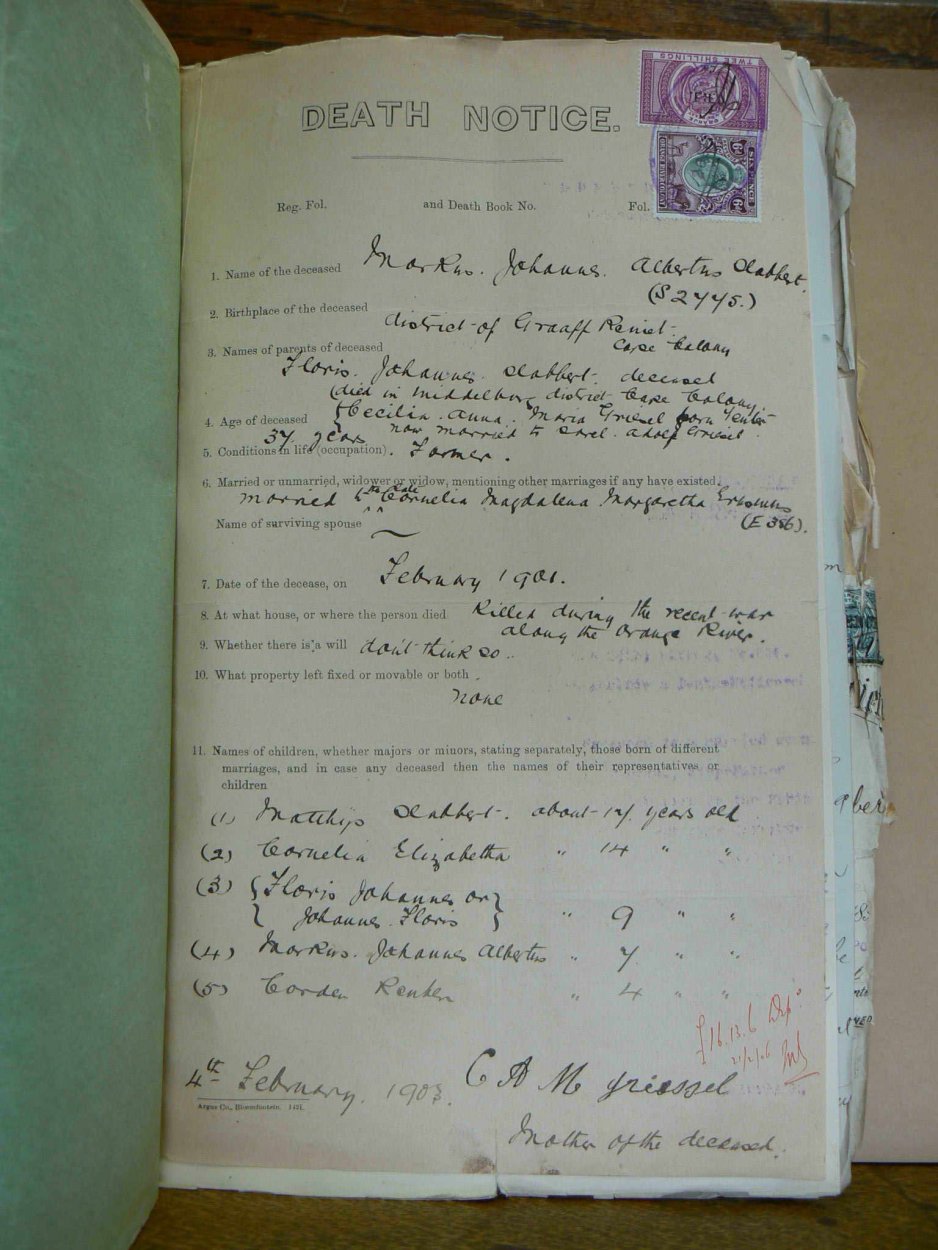 TWEE SHILLINGS
SIX PENCE
6d 6d
DEATH NOTICE.
Reg. Fol. and Death Book No. Fol.
1. Name of the deceased Markus. Johannes. Albertus Slabbert.
(S 2445.)
2. Birthplace of the deceased district of Graaff Reniet
Cape Colony
3. Names of parents of deceased
Floris. Johannes. Slabbert. deceased
(died in Middelburg district Cape Colony.
4. Age of deceased {Cecilia. Anna. Maria Griesel born Venter
37 years now married to Carel. Adolf Griesel.
5. Conditions in life (occupation). Farmer.
6. Married or unmarried, widower or widow, mentioning other marriages if any have existed.
married to the late Cornelia Magdalena Margaretha Erasmus
Name of surviving spouse (E 386).
7. Date of the decease, on February 1901.
8. At what house, or where the person died Killed during the recent war
along the Orange River.
9. Whether there is a will don't think so.
10. What property left fixed or movable or both.
none
11. Names of children, whether majors or minors, stating separately, those born of different
marriages, and in case any deceased then the names of their representatives or
children
(1) Matthys Slabbert. about 17 years old
(2) Cornelia Elizabetha " 14 " "
(3) {Floris Johannes or}
{Johannes Floris} " 9 " "
(4) Markus. Johannes Albertus " 7 " "
(5) Corden " 4 " "
£16.13.6 Dep.
21/2/06
4th February. 1903. C A M Griessel
Argus Co., Bloemfontein.
Mother of the deceased.